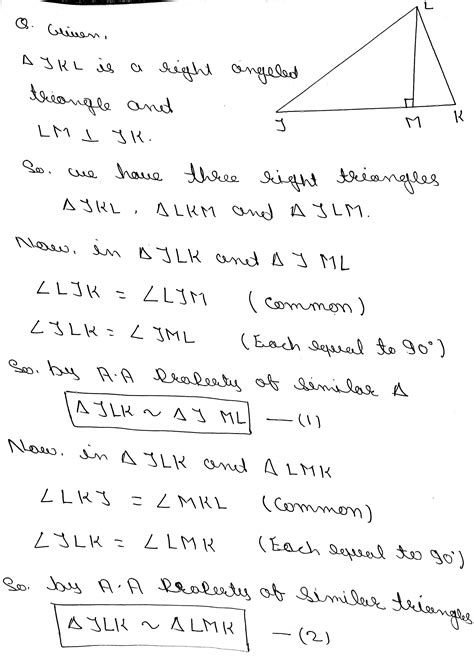 Q. Given,
Δ JKL is a right angeled
triangle and
LM ⊥ JK.
L
J
M
K
So. we have three right triangles
Δ JKL, Δ LKM and Δ JLM.
Now, in Δ JLK and Δ J ML
∠LJK = ∠LJM (Common)
∠JLK = ∠JML (Each equal to 90°)
So. by A.A Property of similar Δ
Δ JLK ~ Δ J ML —(1)
Now. in Δ JLK and Δ LMK
∠LKJ = ∠MKL (Common)
∠JLK = ∠LMK (Each equal to 90°)
So. by A.A Property of similar triangles
Δ JLK ~ Δ LMK —(2)